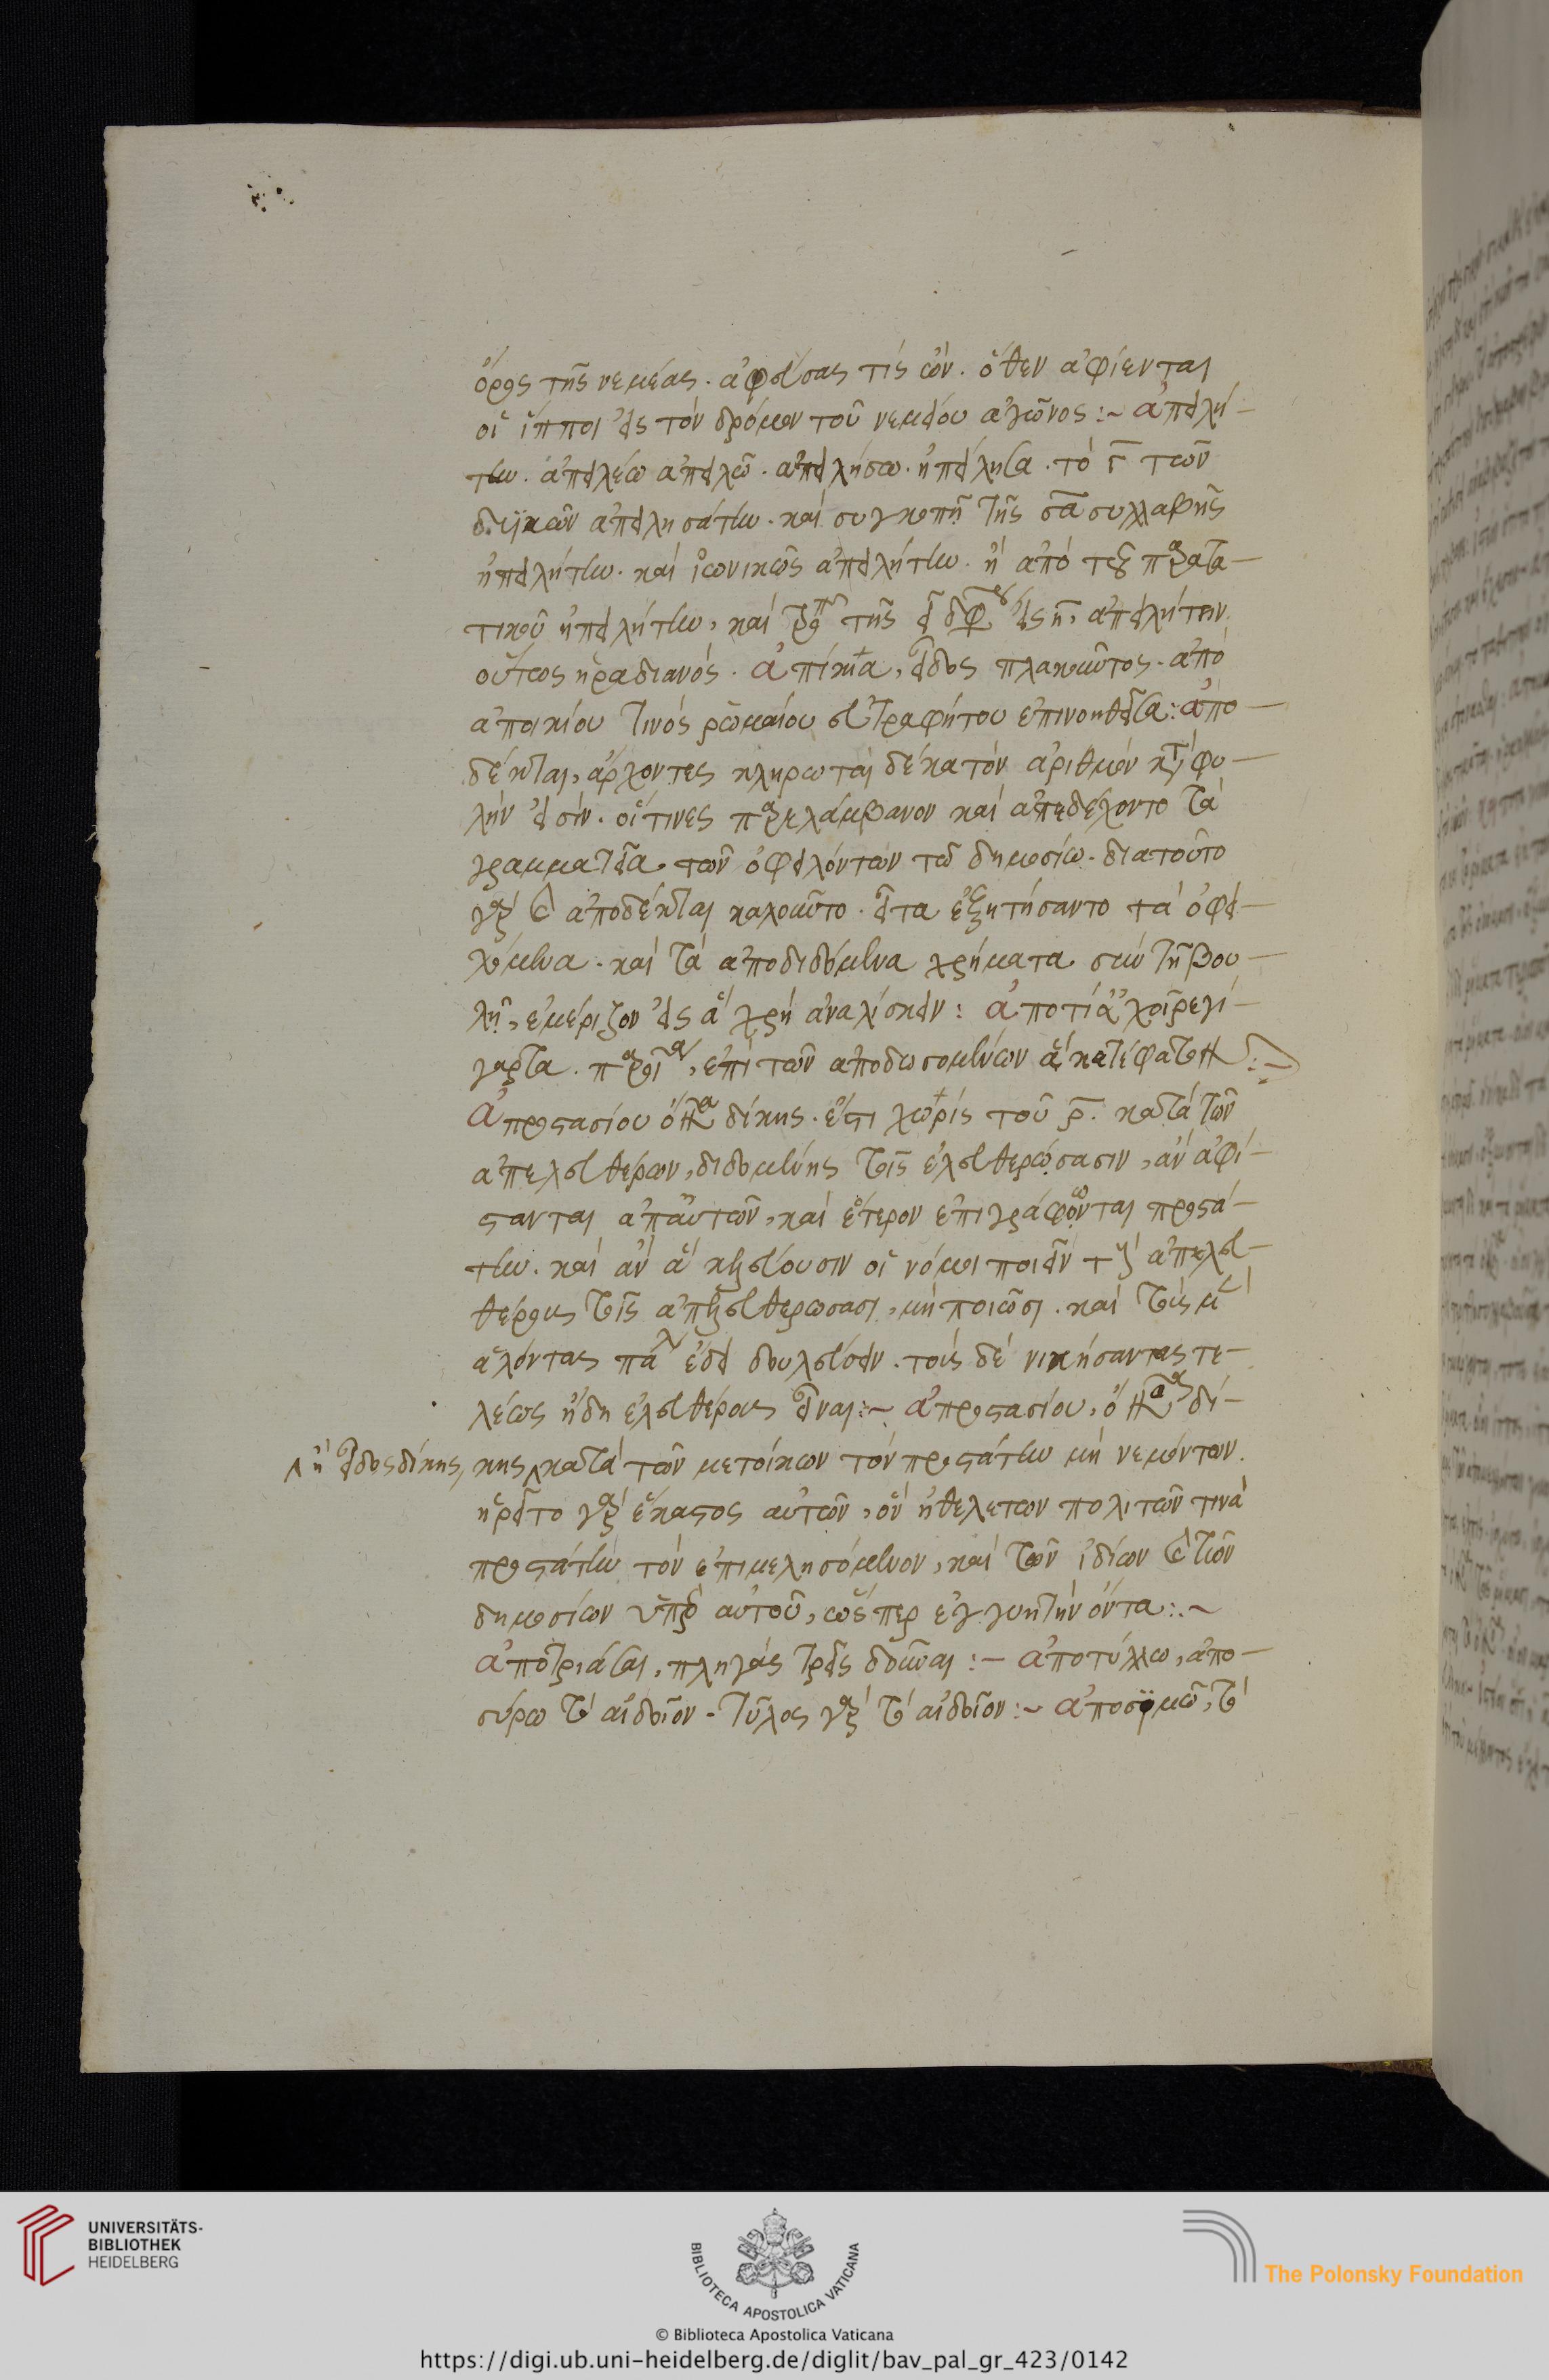 ὄρος τῆς νεμέας. ἀφεύσας τίς ὤν. ὅθεν ἀφίενται
οἱ ἵπποι εἰς τὸν δρόμον τοῦ νεμείου ἀγῶνος :~ ἀπειλή-
την. ἀπειλέω ἀπειλῶ. ἀπειλήσω. ἠπείλησα. τὸ γ τῶν
δυϊκῶν ἀπειλησάτην. καὶ συγκοπῇ τῆς σα συλλαβῆς
ἠπειλήτην. καὶ ἰωνικῶς ἀπειλήτην. ἢ ἀπὸ τοῦ παρατα-
τικοῦ ἠπειλήτην, καὶ τροπῇ τῆς ει διφθόγγου εἰς η, ἀπειλήτην.
οὕτως ἡραδιανός. ἀπίκια, εἶδος πλακοῦντος. ἀπὸ
ἀποικίου τινὸς ῥωμαίου εὐτραφήτου ἐπινοηθεῖσα: ἀπο-
δέκται, ἄρχοντες κληρωταὶ δέκα τὸν ἀριθμὸν κατὰ φυ-
λὴν εἰσίν. οἵτινες παρελάμβανον καὶ ἀπεδέχοντο τὰ
γραμματεῖα τῶν ὀφειλόντων τῷ δημοσίῳ. διατοῦτο
γὰρ καὶ ἀποδέκται καλοῦντο. εἶτα ἐξητήσαντο τὰ ὀφει-
λόμενα. καὶ τὰ ἀποδιδόμενα χρήματα σὺν τῇ βου-
λῇ, ἐμέριζον εἰς ἃ χρὴ ἀναλίσκειν: ἀποτί
γαρτα. παροιμία, ἐπὶ τῶν ἀποδωσομένων ἃ κατέφατον :~
ἀπροστασίου ὄνομα δίκης. ἔστι χωρὶς τοῦ ρ. κατὰ τῶν
ἀπελευθέρων, διδομένης τοῖς ἐλευθερώσασιν, ἂν ἀφί-
στανται ἀπ' αὐτῶν, καὶ ἕτερον ἐπιγράφονται προστά-
την. καὶ ἂν ἃ κελεύουσιν οἱ νόμοι ποιεῖν τοὺς ἀπελευ-
θέρους τοῖς ἀπελευθερωσασι, μὴ ποιῶσι. καὶ τοὺς μὲν
ἁλόντας πάλιν ἔδει δουλεύειν. τοὺς δὲ νικήσαντας τε-
λέως ἤδη ἐλευθέρους εἶναι :~ ἀπροστασίου, ὄνομα δί-
ἢ εἶδος δίκης,
κης κατὰ τῶν μετοίκων τὸν προστάτην μὴ νεμόντων.
ἡρεῖτο γὰρ ἕκαστος αὐτῶν, ὃν ἤθελε τῶν πολιτῶν τινὰ
προστάτην τὸν ἐπιμελησόμενον, καὶ τῶν ἰδίων καὶ τῶν
δημοσίων ὑπὲρ αὐτοῦ, ὥσπερ ἐγγυητὴν ὄντα :~
ἀποτριάσαι, πληγὰς τρεῖς δοῦναι :- ἀποτύλλω, ἀπο-
σύρω τὸ αἰδοῖον. τύλος γὰρ τὸ αἰδοῖον :~ ἀποσιμῶ, τὸ
UNIVERSITÄTS-
BIBLIOTHEK
HEIDELBERG
BIBLIOTECA APOSTOLICA VATICANA
The Polonsky Foundation
© Biblioteca Apostolica Vaticana
https://digi.ub.uni-heidelberg.de/diglit/bav_pal_gr_423/0142